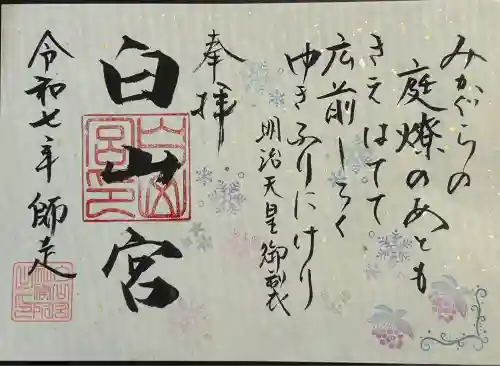 みかぐらの
庭燎のあとも
きえはてて
広前しろく
ゆきふりにけり
明治天皇御製
奉拝
白山宮
令和七年師走